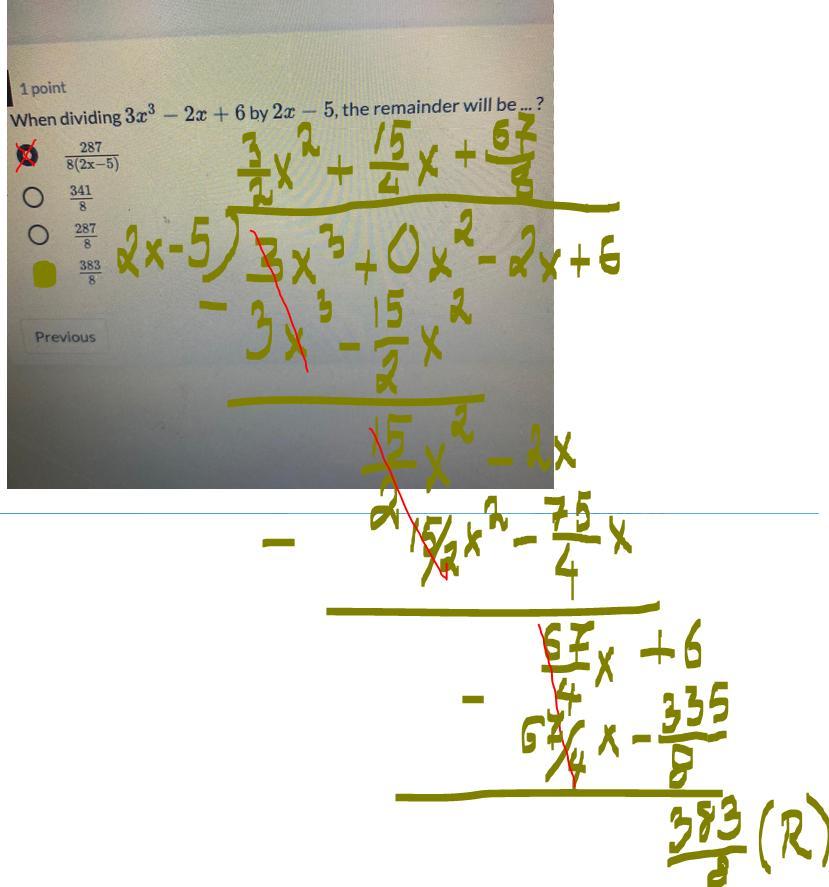 1 point
When dividing 3x³ − 2x + 6 by 2x − 5, the remainder will be ... ?
287/8(2x−5)
341/8
287/8
383/8
Previous
3/2 x² + 15/4 x + 67/8
2x-5) 3x³ + 0x² - 2x + 6
- 3x³ - 15/2 x²
15/2 x² - 2x
- 15/2 x² - 75/4 x
67/4 x + 6
- 67/4 x - 335/8
383/8 (R)